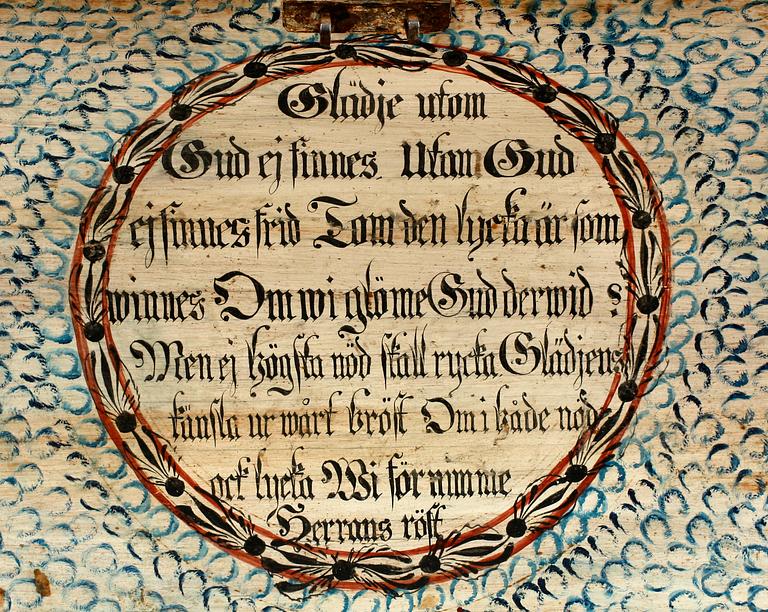 Glädje utom
Gud ej finnes Utan Gud
ej finnes frid Tom den lycka är som
winnes Om wi glöme Gud derwid ?
Men ej högsta nöd skall rycka Glädjens
känsla ur wårt bröst Om i både nöd
ock lycka Wi förnimme
Herrans röst